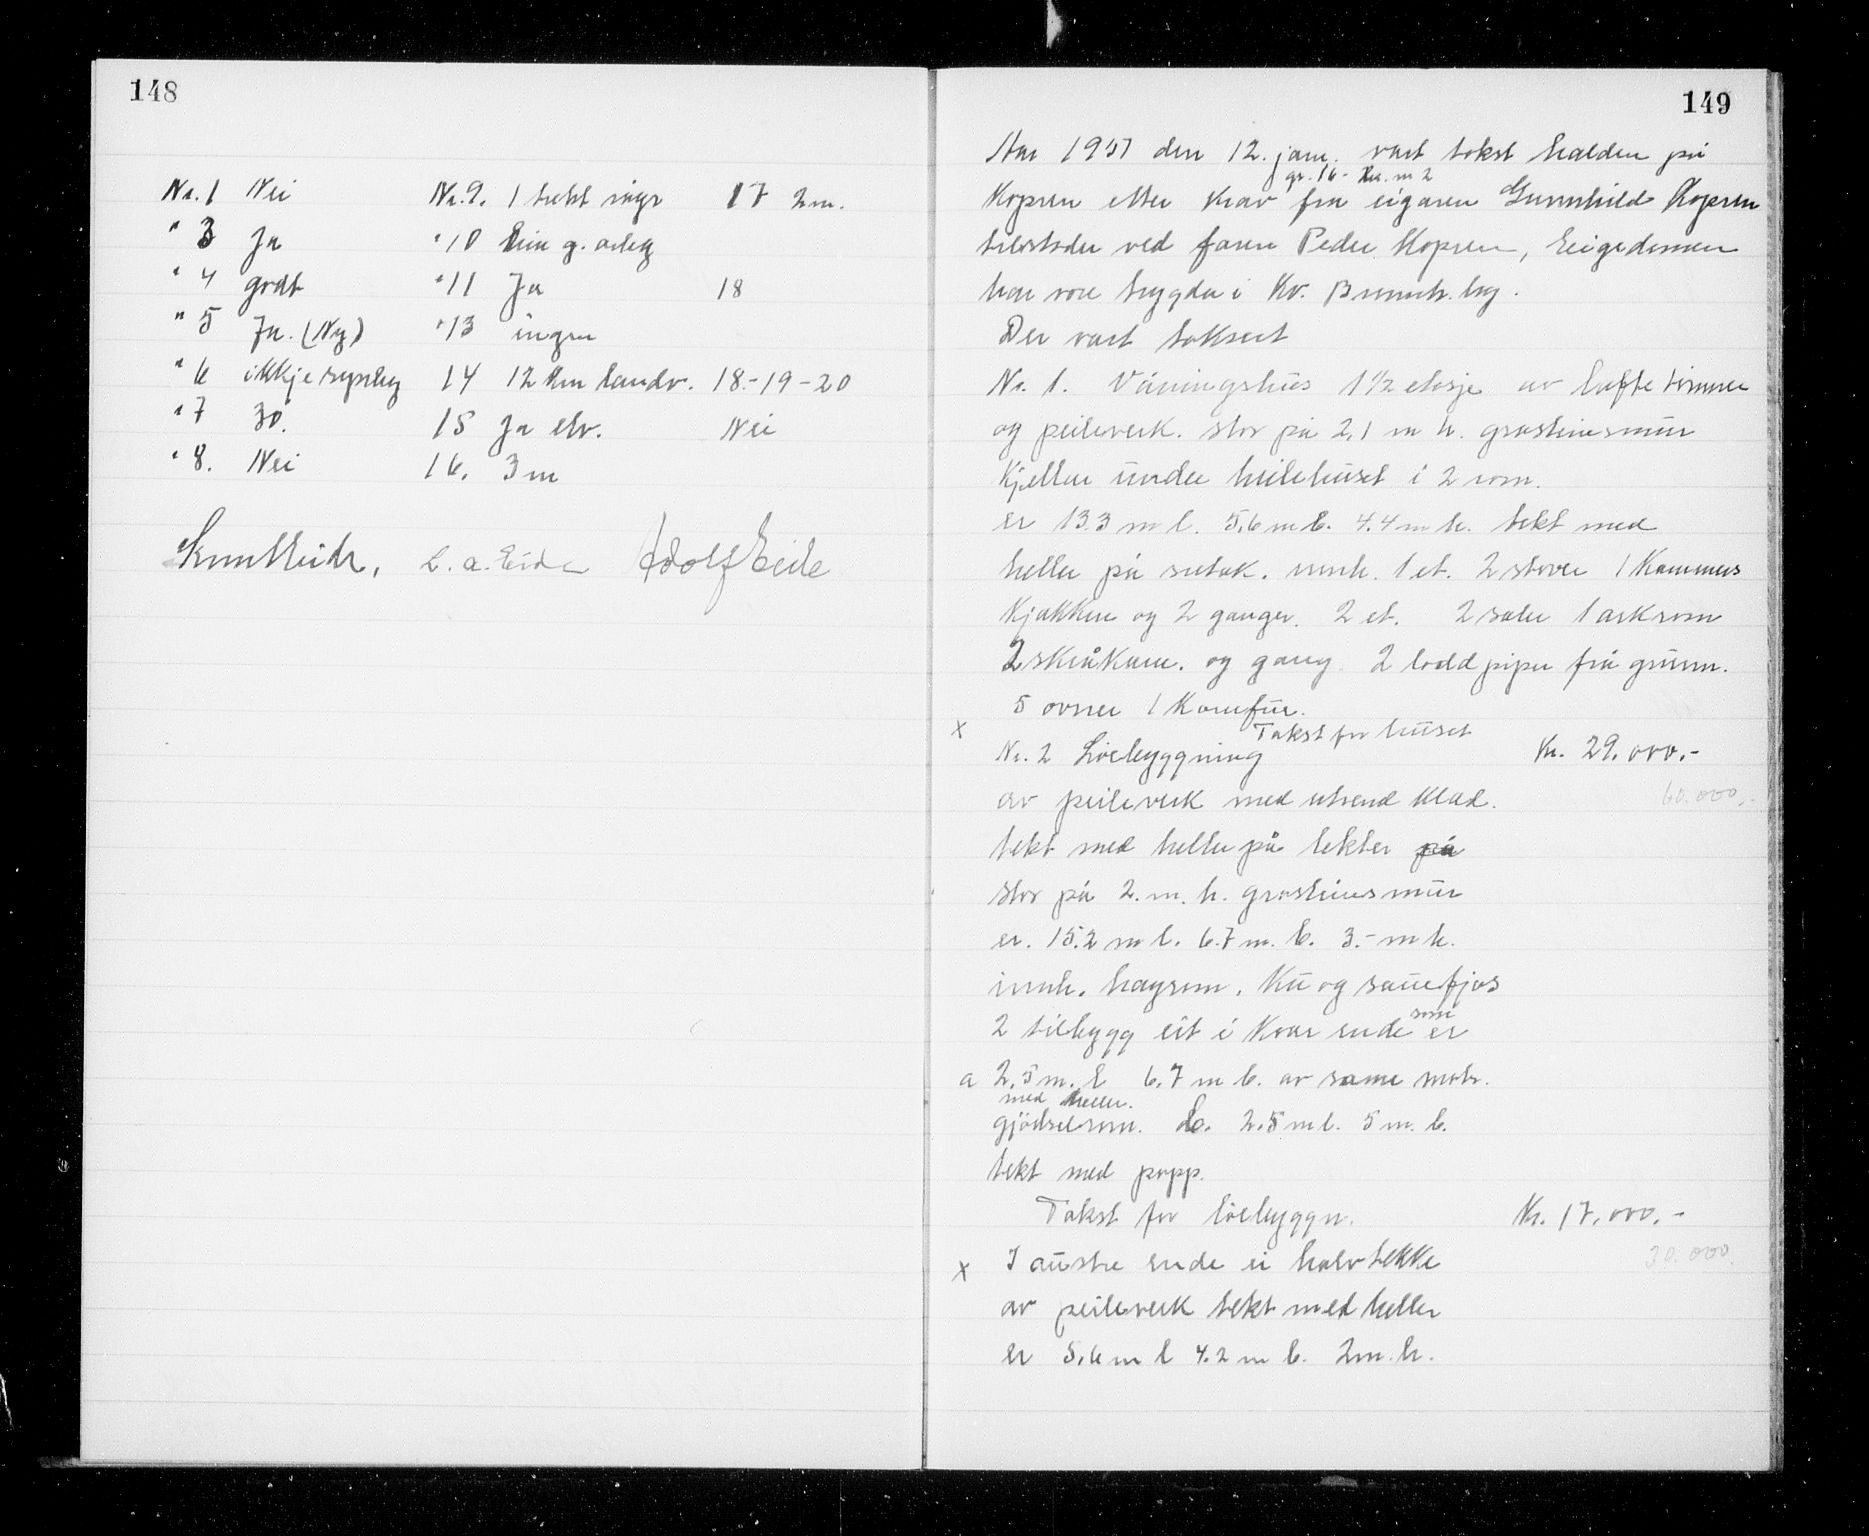 148
Nr. 1 Nei Nr. 9. 1 trekt 17 2 m.
" 3 Ja " 10 Ein g. årleg
" 4 godt " 11 Ja 18
" 5 Ja. (Ny) " 13 ingen
" 6 ikkje synleg 14 12 km landv. 18-19-20
" 7 30. 15 Ja elv. Nei
" 8. Nei 16. 3 m
L. A. Eide Adolf Eide
149
Aar 1957 den 12. jan. vart takst halden på
gr. 16 - br. n 2
Kopren etter krav fra eigaren Gunnhild Kopren
tilstades ved faren Peder Kopren, Eigedomen
har vore trygda i No. Brannk. lag.
Der vart taksert
Nr. 1. Våningshus 1 1/2 etasje av lafte timmer
og peileverk. stor på 2,1 m h. grasteinsmur
Kjellar under heile huset i 2 rom.
er 13.3 m l. 5,6 m b. 4.4 m h. tekt med
heller på sutak. innh. 1 et. 2 stover 1 Kammers
Kjøkken og 2 ganger. 2 et. 2 saler 1 arkrom
2 skråkam. og gang. 2 lodd piper frå grunn.
5 ovner 1 Komfur.
x Takst for huset
Nr. 2 Løebyggning Kr. 29.000.-
av peileverk med utvend klæd. 60.000,-
tekt med heller på lekter på
stor på 2. m. h. grasteinsmur
er. 15.2 m l. 6.7 m. b. 3.- m h.
innh. høyrom. Ku og sauefjøs
som
2 tilbygg eit i kvar ende er
a 2,5 m. l 6,7 m b. av same matr.
med heller.
gjødselrom. 2.5 m l. 5 m. b.
tekt med papp.
Takst for løebyggn. Kr. 17.000.-
30.000.
x I austre ende ei halvtekke
av peileverk tekt med heller
er 5,6 m l 4.2 m b. 2 m. h.